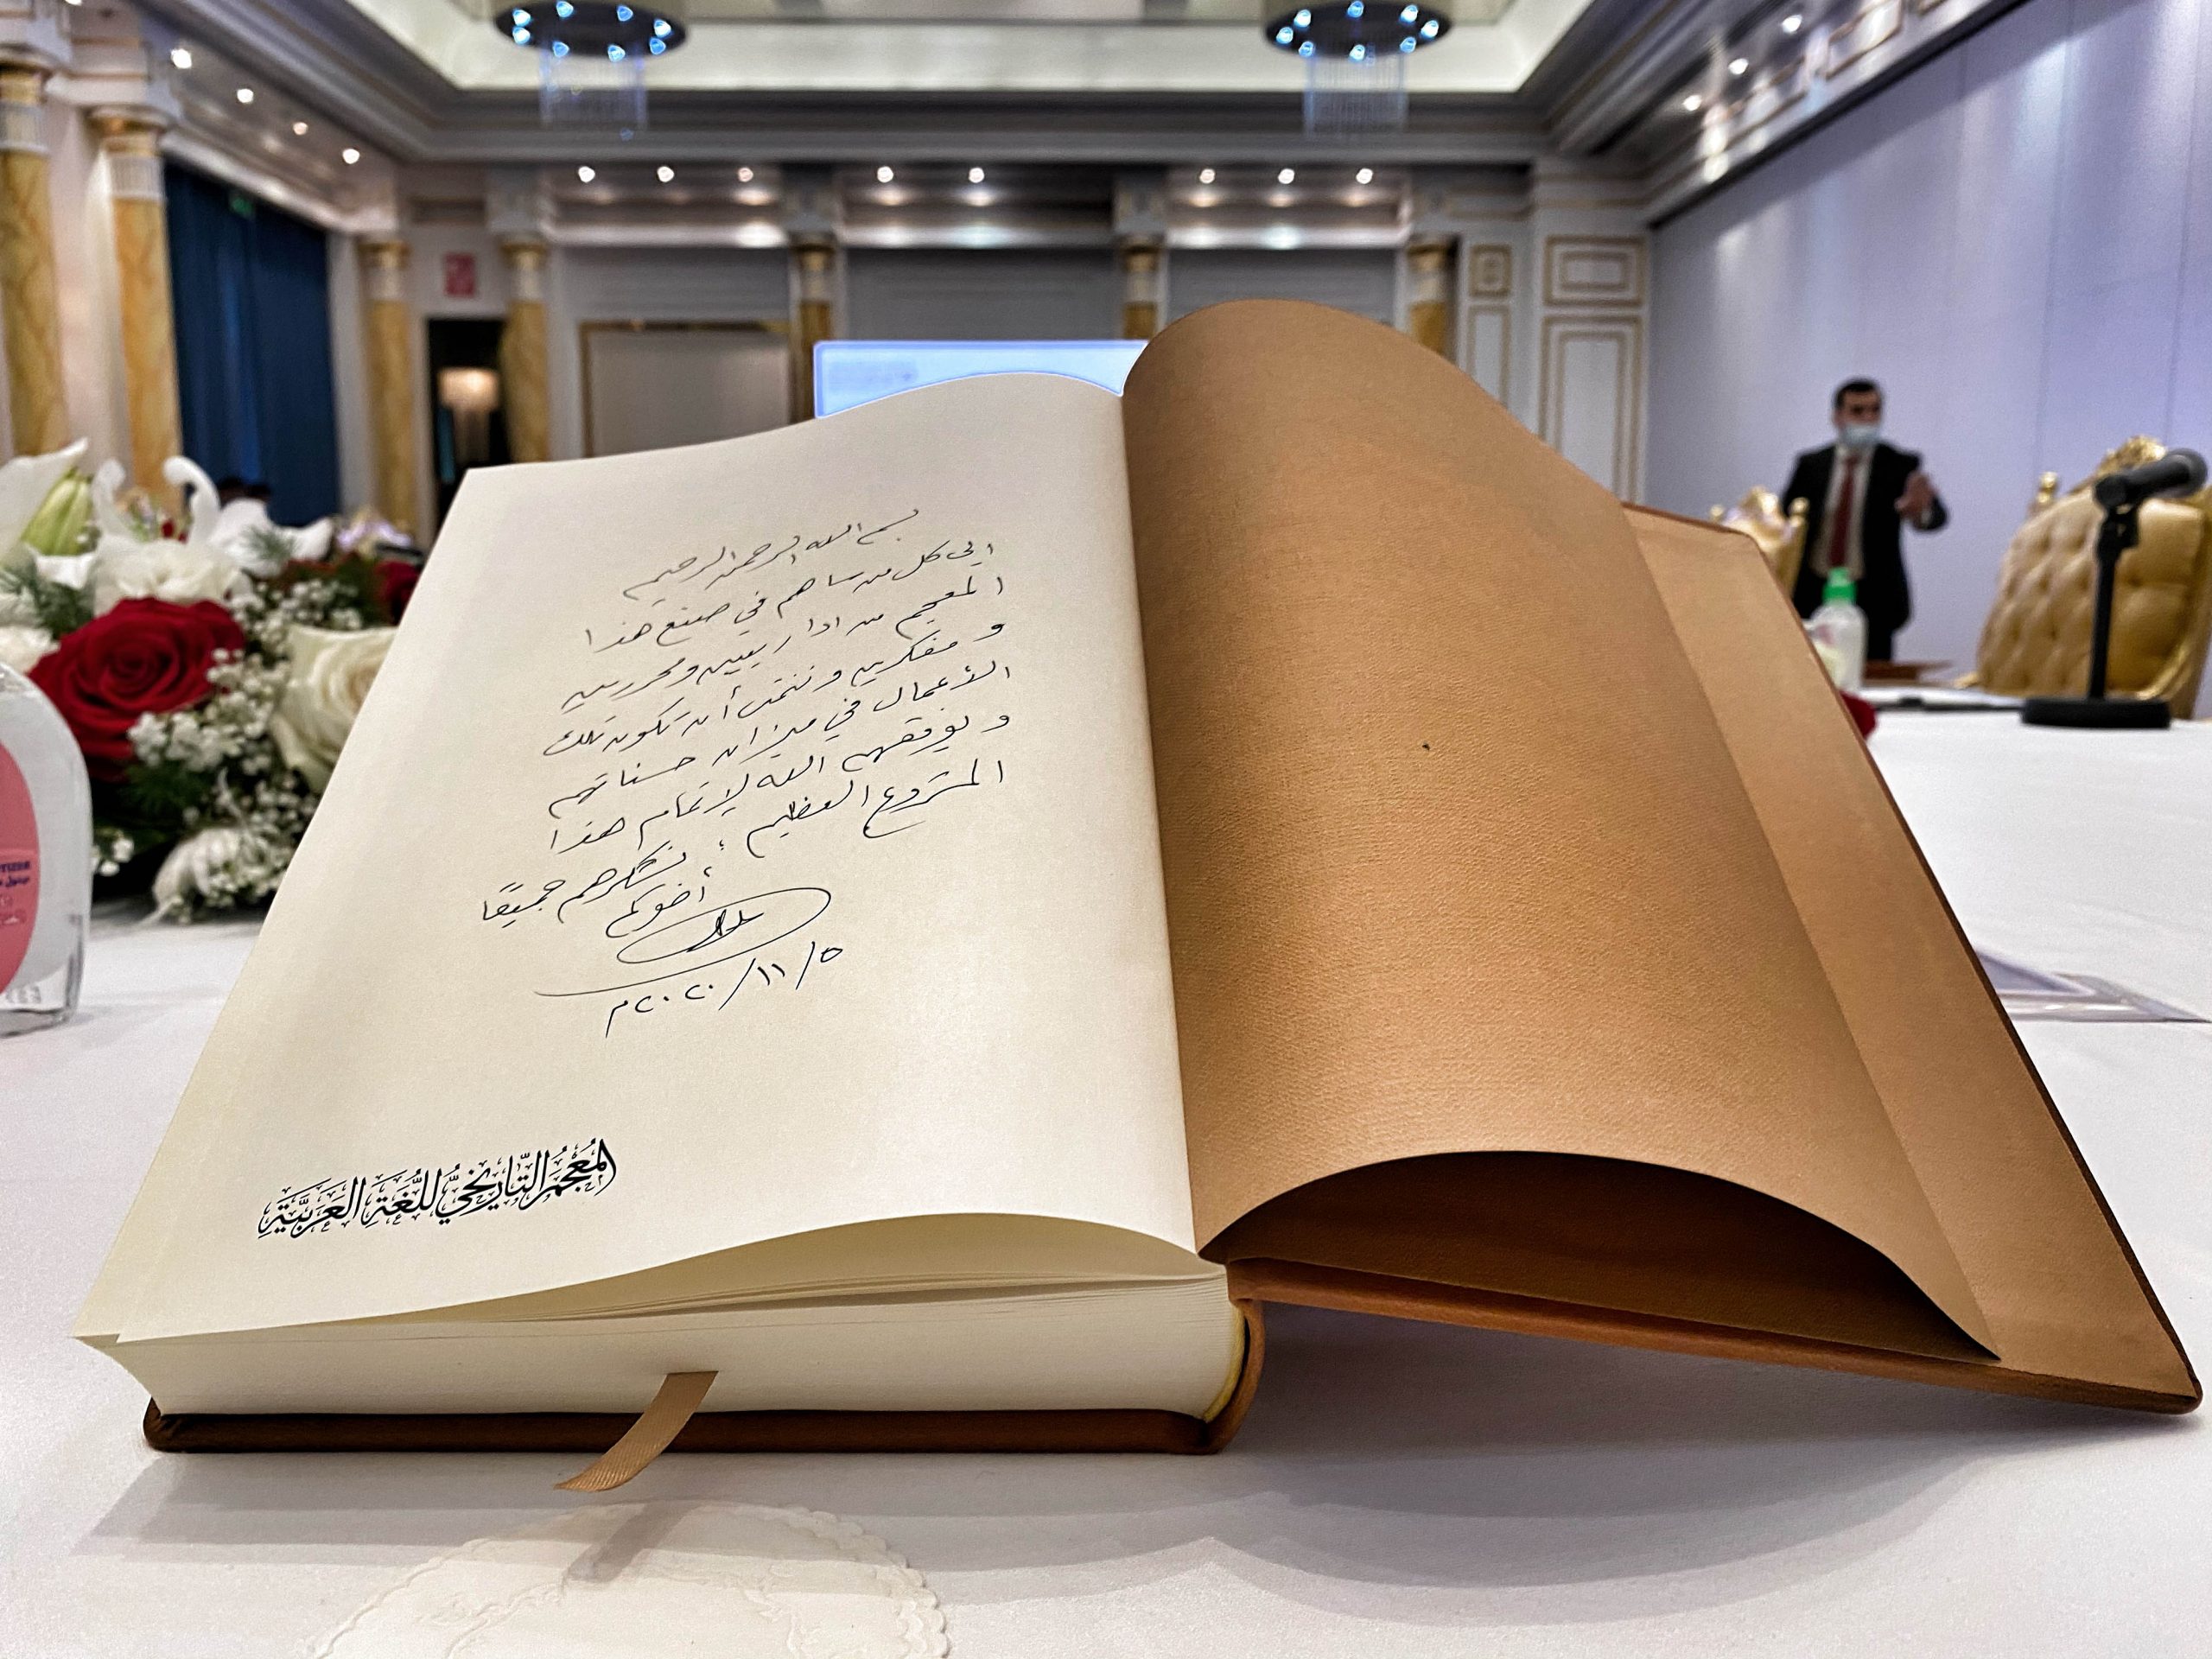 بسم الله الرحمن الرحيم
الى كل من ساهم في صنع هذا
المعجم من اداريين ومحررين
و مفكرين ونتمنى أن تكون تلك
الأعمال في ميزان حسناتهم
و يوفقهم الله لإتمام هذا
المشروع العظيم ،
نشكرهم جميعًا
أخوكم
٥/١١/٢٠٢٠م
المُعْجَمُ التَّارِيخيُّ لِلُّغَةِ العَرَبِيَّةِ